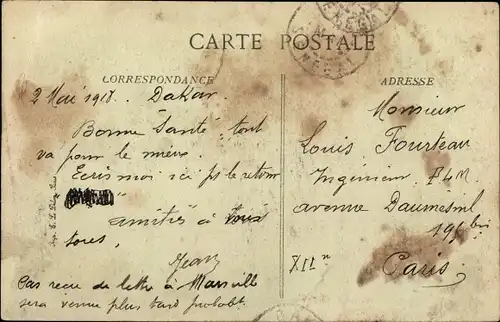 CARTE POSTALE
CORRESPONDANCE
ADRESSE
2 Mai 1918. Dakar.
Bonne Santé, tout
va pour le mieux.
Ecris moi ici pr le retour
amitiés à
Jean
Pas reçu de lettre à Marseille
sera venue plus tard probabt.
Monsieur
Louis Fourteau
Ingénieur PLM
avenue Daumesnil
196 bis
XII
Paris